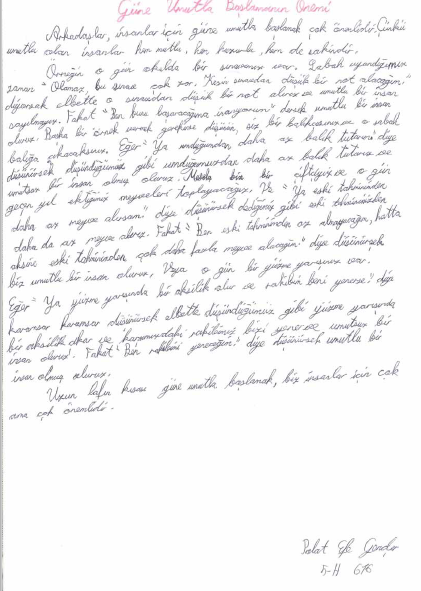 Güne Umutla Başlamanın Önemi
Arkadaşlar, insanlar için güne umutla başlamak çok önemlidir. Çünkü
umutla olan insanlar hem mutlu, hem huzurlu, hem de sakindir.
Örneğin o gün okulda bir sınavımız var. Sabah uyandığımız
zaman "Olamaz, bu sınav çok zor. Kesin sınavdan düşük bir not alacağım."
diyorsak elbette o sınavdan düşük bir not alırız ve umutlu bir insan
sayılmayız. Fakat "Ben bunu başaracağıma inanıyorum" dersek umutlu bir insan
oluruz. Başka bir örnek verecek olursak, siz bir balıkçısınız ve o sabah
balığa çıkacaksınız. Eğer "Ya umduğumdan daha az balık tutarsam" diye
düşünürsek düşündüğümüz gibi umduğumuzdan daha az balık tutarız ve
umutsuz bir insan olmuş oluruz. Mesela biz bir çiftçiyiz ve o gün
geçen yıl ektiğimiz meyveleri toplayacağız. Ve "Ya eski tahminimden
daha az meyve alırsam" diye düşünürsek dediğimiz gibi eski tahminimizden
daha da az meyve alırız. Fakat "Ben eski tahminimden az almayacağım, hatta
aksine eski tahminimden çok daha fazla meyve alacağım" diye düşünürsek
biz umutlu bir insan oluruz. Veya o gün bir yüzme yarışımız var.
Eğer "Ya yüzme yarışında bir aksilik olur ve rakibim beni yenerse?" diye
karamsar karamsar düşünürsek elbette düşündüğümüz gibi yüzme yarışında
bir aksilik çıkar ve karşımızdaki rakibimiz bizi yener ve umutsuz bir
insan oluruz. Fakat "Ben rakibimi yeneceğim." diye düşünürsek umutlu bir
insan olmuş oluruz.
Uzun lafın kısası güne umutla başlamak, biz insanlar için çok
ama çok önemlidir.
Efe Gençler
5-H 676